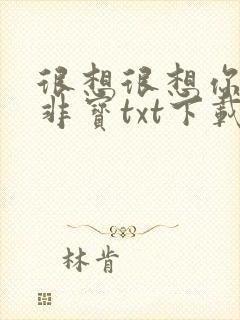 很想很想你
非宝txt下载
林肯